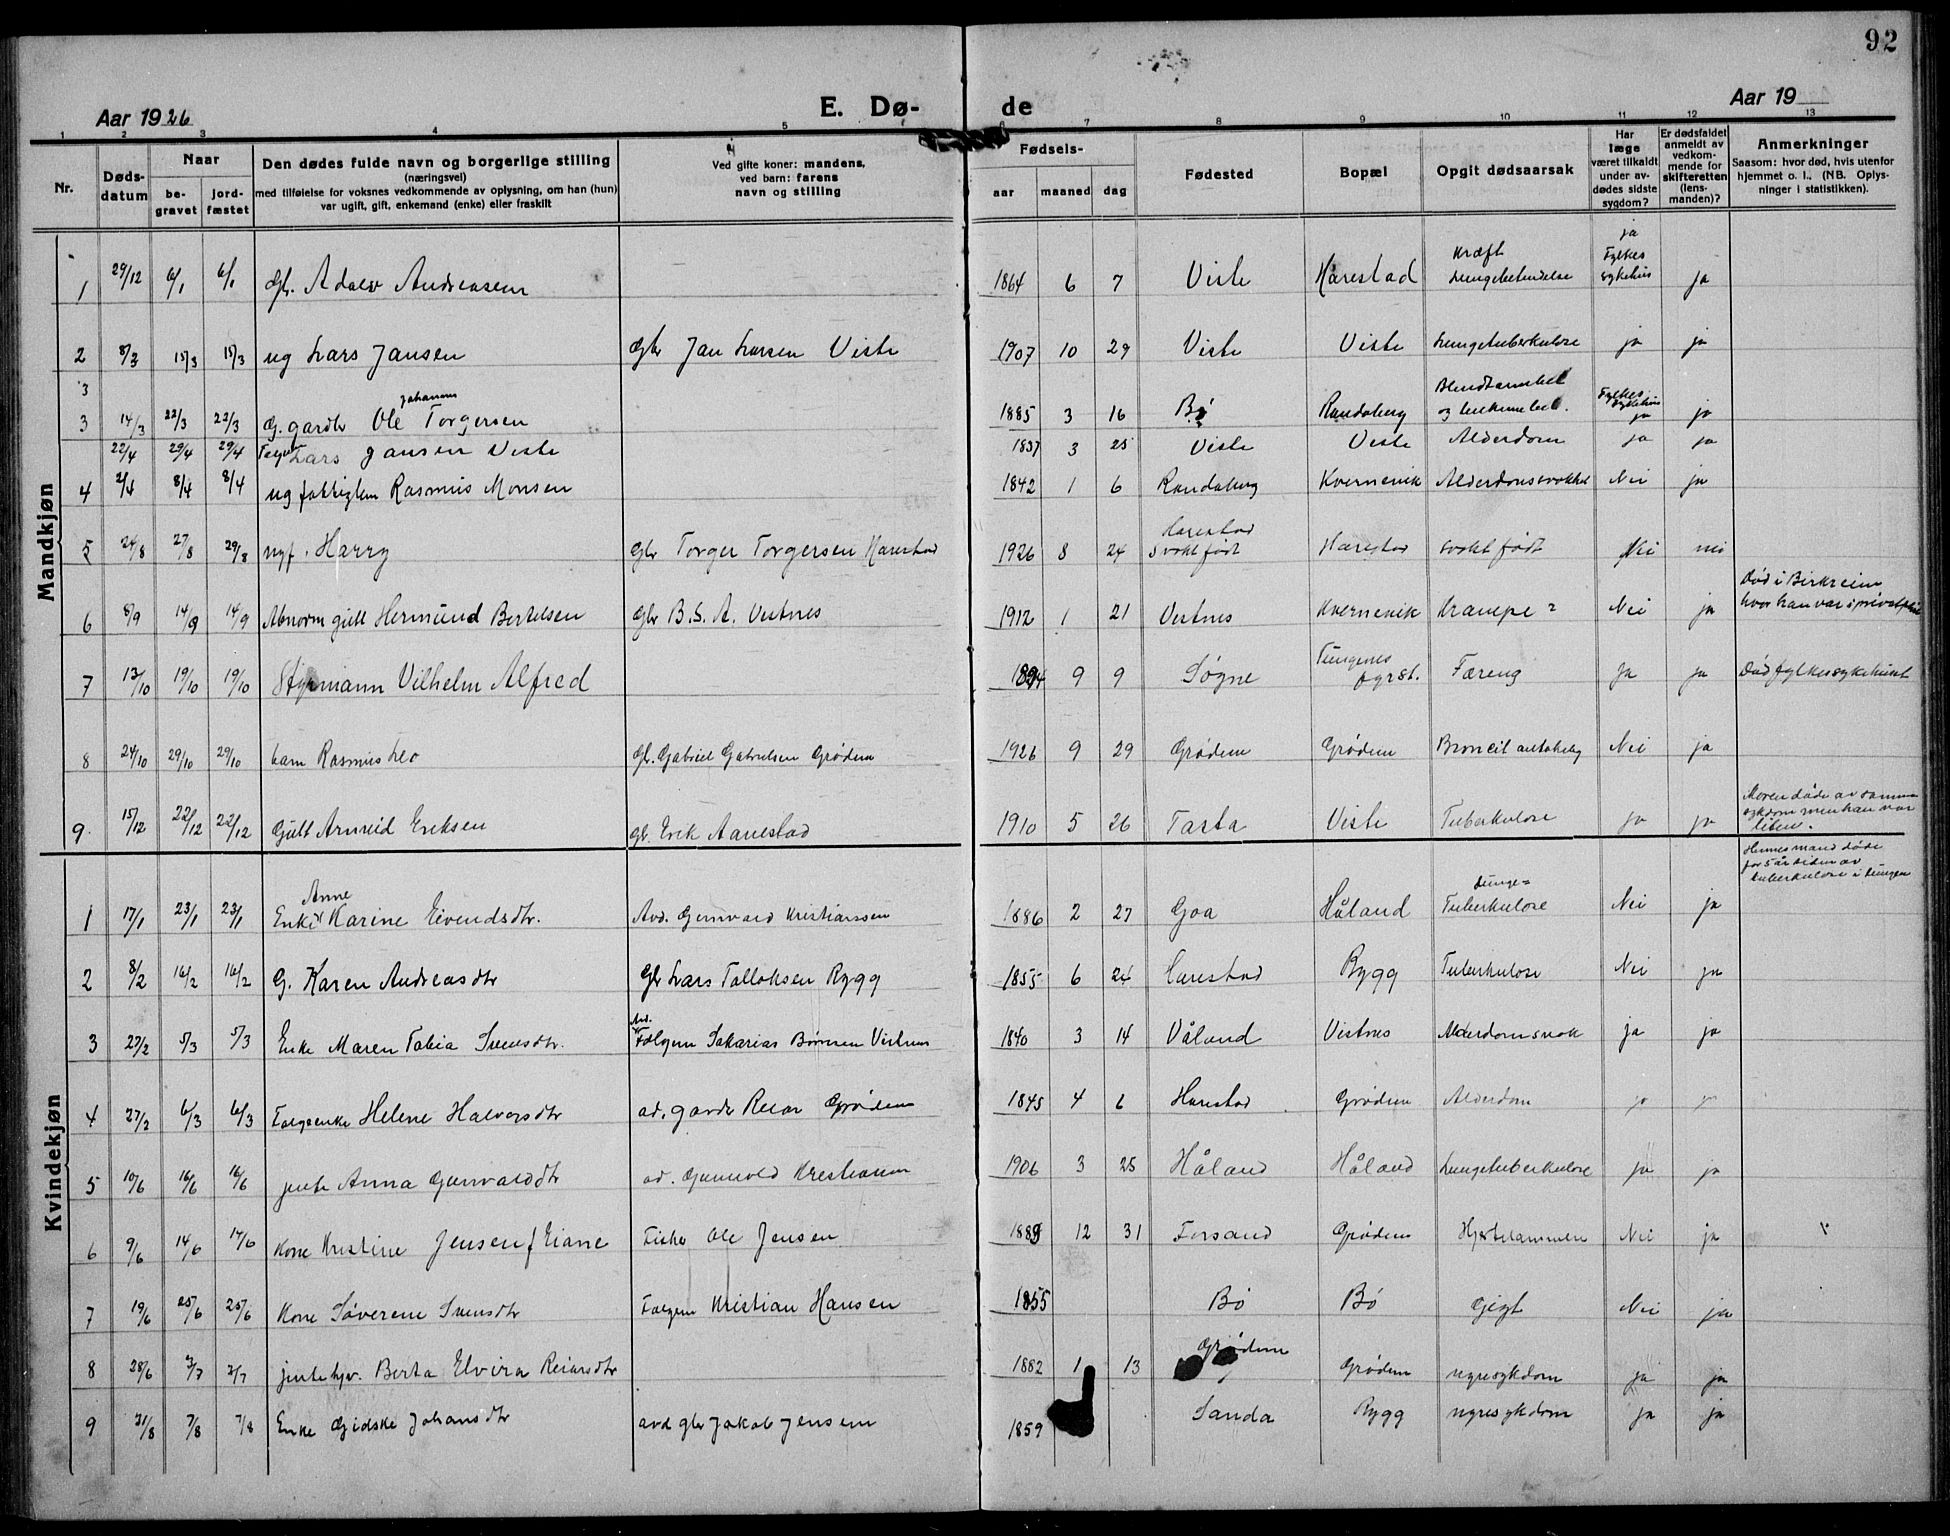 92
Aar 1926
E. Dø-
de
Aar 19
1 2 3 4 5 6 7 8 9 10 11 12 13
Nr.
Døds-
datum
Naar
be-
gravet
jord-
fæstet
Den dødes fulde navn og borgerlige stilling
(næringsvei)
med tilføielse for voksnes vedkommende av oplysning, om han (hun)
var ugift, gift, enkemand (enke) eller fraskilt
Ved gifte koner: mandens,
ved barn: farens
navn og stilling
Fødsels-
aar
maaned
dag
Fødested
Bopæl
Opgit dødsaarsak
Har
læge
været tilkaldt
under av-
dødes sidste
sygdom?
Er dødsfaldet
anmeldt av
vedkom-
mende for
skifteretten
(lens-
manden)?
Anmerkninger
Saasom: hvor død, hvis utenfor
hjemmet o. l.. (NB. Oplys-
ninger i statistikken).
Mandkjøn
1 29/12 6/1 6/1 Gbr. Adolev Andreasen 1864 6 7 Viste Harestad Kræft Lungebetendelse ja Fylkes sykehus ja
2 8/3 15/3 15/3 ug Lars Jansen Gbr Jan Larsen Viste 1907 10 29 Viste Viste Lungetuberkulose ja ja
3
3 14/3 22/3 22/3 G. gardbr Ole Johannes Torgersen 1885 3 16 Bø Randaberg Blindtarmbet og bukhinnebet. Fylkes sykehus ja ja
22/4 29/4 29/4 Lars Jansen Viste 1837 3 25 Viste Viste Alderdom ja ja
4 2/4 8/4 8/4 ug fattiglem Rasmus Monsen 1842 1 6 Randaberg Kvernevik Alderdomssvakhet Nei ja
5 24/8 27/8 29/8 nyf. Harry Gbr Torger Torgersen Harestad 1926 8 24 Harestad svakt født Harestad svakt født Nei nei
6 8/9 14/9 14/9 Abnorm gutt Hermund Bertelsen Gbr B. S. A. Vistnes 1912 1 21 Vistnes Kvernevik Krampe? Nei ja Død i Birkreim hvor han var i privatpleie
7 13/10 19/10 19/10 Styrmann Vilhelm Alfred 1894 9 9 Søgne Tungenes fyrst. Færeng ja ja Død fylkessykehuset
8 24/10 29/10 29/10 barn Rasmus Leo Gbr. Gabriel Gabrielsen Grødem 1926 9 29 Grødem Grødem Nei ja
9. 15/12 22/12 22/12 Gutt Arneid Eriksen gbr. Erik Aanestad 1910 5 26 Tasta Viste Tuberkulose ja ja Moren døde av samme sykdom men han var liten.
Kvindekjøn
1 17/1 23/1 23/1 Enke Anne Karine Eivendsdtr. Avd. Gunvald Kristianssen 1886 2 27 Goa Håland Lunge= Tuberkulose Nei ja Hennes mand døde for 5 år siden av tuberkulose i lungen
2 8/2 16/2 16/2 G. Karen Andreasdtr Gbr Lars Tolloksen Rygg 1855 6 24 Harestad Rygg Tuberkulose Nei ja
3 27/2 5/3 5/3 Enke Maren Tobia Svensdtr. Avd. Folgem Sakarias Børnsen Vistnes 1840 3 14 Våland Vistnes Alderdomsvak ja ja
4 27/2 6/3 6/3 Folgeenke Helene Halvorsdtr ad. gardbr Reiar Grødem 1845 4 6 Harestad Grødem Alderdom ja ja
5 10/6 16/6 16/6 jente Anna Gunvalddtr ad. Gunvald Kristiansen 1906 3 25 Håland Håland Lungetuberkulose ja ja
6 9/6 14/6 14/6 Kone Kristine Jensen f Eiane Fisker Ole Jensen 1889 12 31 Forsand Grødem Hjertelammen Nei ja
7 19/6 25/6 25/6 Kone Søverene Svensdtr Folgem Kristian Hansen 1855 Bø Bø Gigt Nei ja
8 28/6 2/7 2/7 jente hjv. Berta Elvira Reiarsdtr 1882 1 13 Grødem Grødem nyresykdom ja ja
9 31/8 7/8 7/8 Enke Gidske Johansdtr avd gbr Jakob Jensen 1859 Sanda Rygg nyresykdom ja ja